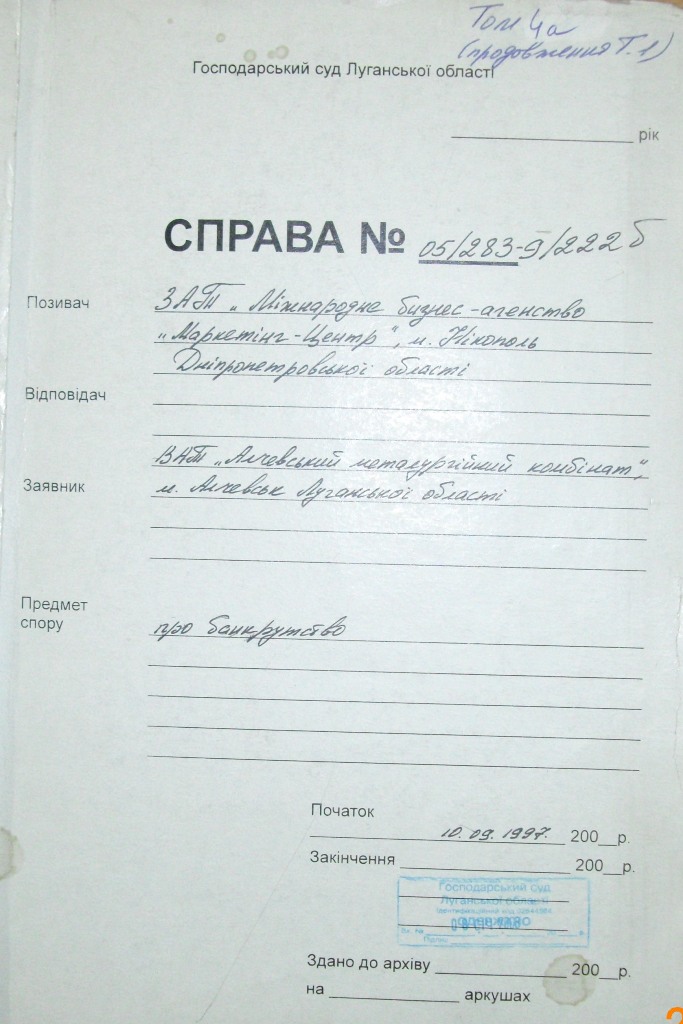 Том 4а
(продовження Т.1)
Господарський суд Луганської області
рік
СПРАВА № 05/283-9/222б
Позивач ЗАТ „Міжнародне бизнес-агенство
„Маркетінг-Центр", м. Нікополь
Дніпропетровської області
Відповідач
ВАТ „Алчевський металургійний комбінат",
Заявник м. Алчевськ Луганської області
Предмет
спору про банкрутство
Початок
10.09.1997. 200__р.
Закінчення 200__р.
Господарський суд
Луганської області
Ідентифікаційний код
одержано
Вх. №
Підпис
Здано до архіву 200__р.
на аркушах